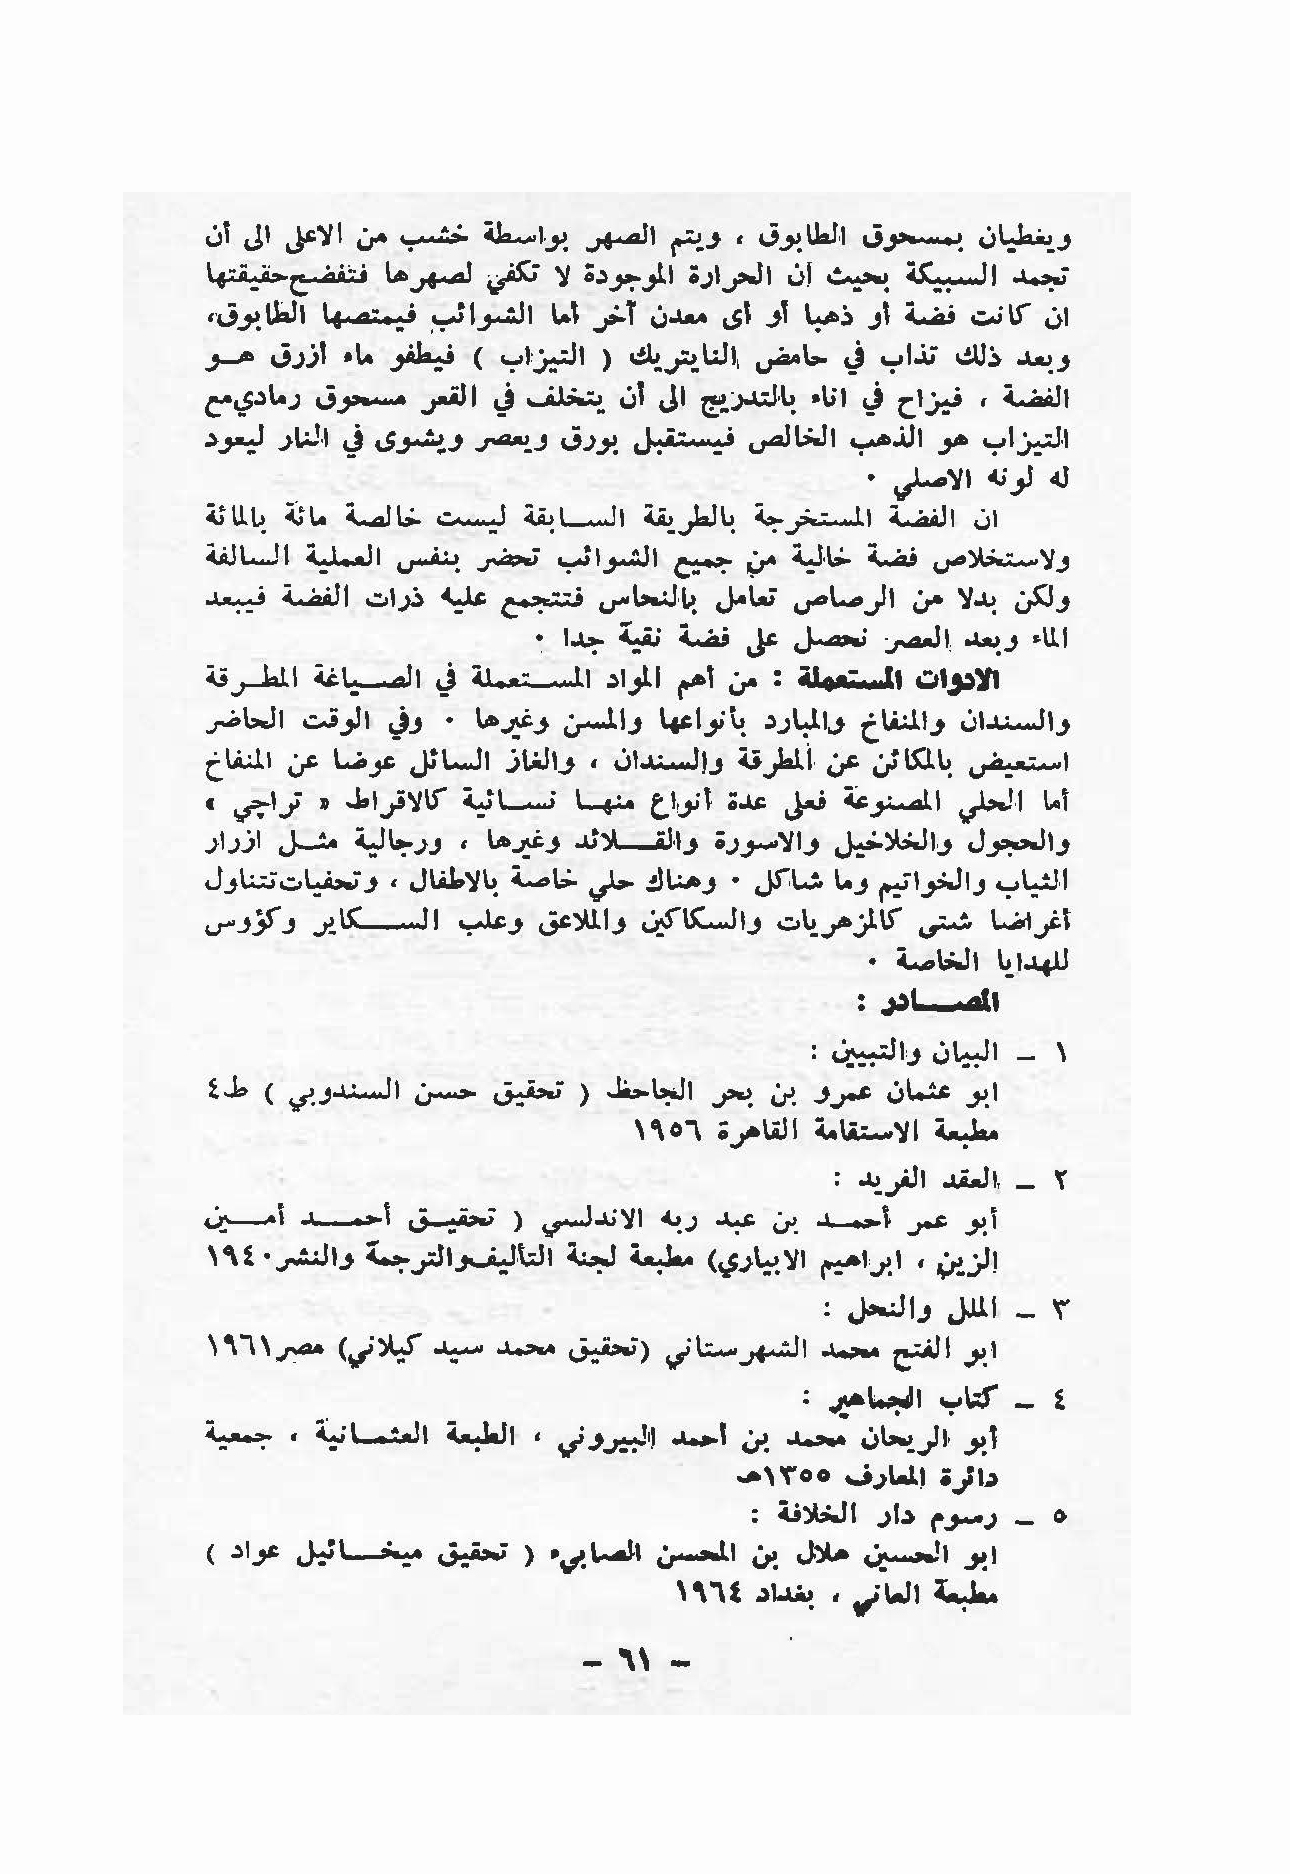 ويغطيان بمسحوق الطابوق ، ويتم الصهر بواسطة خشب من الاعلى الى أن
تجمد السبيكة بحيث أن الحرارة الموجودة لا تكفي لصهرها فتفضح حقيقتها
ان كانت فضة أو ذهبا أو أى معدن آخر أما الشوائب فيمتصها الطابوق،
وبعد ذلك تذاب في حامض النايتريك ( التيزاب ) فيطفو ماء أزرق هو
الفضة ، فيزاح في اناء بالتدريج الى أن يتخلف في القعر مسحوق رمادي مع
التيزاب هو الذهب الخالص فيستقبل بورق ويعصر ويشوى في النار ليعود
له لونه الاصلي ٠
ان الفضة المستخرجة بالطريقة السابقة ليست خالصة مائة بالمائة
ولاستخلاص فضة خالية من جميع الشوائب تحضر بنفس العملية السالفة
ولكن بدلا من الرصاص تعامل بالنحاس فتتجمع عليه ذرات الفضة فيبعد
الماء وبعد العصر نحصل على فضة نقية جدا ٠
الادوات المستعملة : من أهم المواد المستعملة في الصياغة المطرقة
والسندان والمنفاخ والمبارد بأنواعها والمسن وغيرها ٠ وفي الوقت الحاضر
استعيض بالمكائن عن المطرقة والسندان ، والغاز السائل عوضا عن المنفاخ
أما الحلي المصنوعة فعلى عدة أنواع منها نسائية كالاقراط « تراچي »
والحجول والخلاخيل والاسورة والقلائد وغيرها ، ورجالية مثل ازرار
الثياب والخواتيم وما شاكل ٠ وهناك حلي خاصة بالاطفال ، وتحفيات تتناول
أغراضا شتى كالمزهريات والسكاكين والملاعق وعلب السكاير وكؤوس
للهدايا الخاصة ٠
المصادر :
١ - البيان والتبيين :
ابو عثمان عمرو بن بحر الجاحظ ( تحقيق حسن السندوبي ) ط٤
مطبعة الاستقامة القاهرة ١٩٥٦
٢ - العقد الفريد :
أبو عمر أحمد بن عبد ربه الاندلسي ( تحقيق أحمد أمين
الزين ، ابراهيم الابياري) مطبعة لجنة التأليف والترجمة والنشر ١٩٤٠
٣ - الملل والنحل :
ابو الفتح محمد الشهرستاني (تحقيق محمد سيد كيلاني) مصر ١٩٦١
٤ - كتاب الجماهير :
أبو الريحان محمد بن أحمد البيروني ، الطبعة العثمانية ، جمعية
دائرة المعارف ١٣٥٥هـ
٥ - رسوم دار الخلافة :
ابو الحسين هلال بن المحسن الصابيء ( تحقيق ميخائيل عواد )
مطبعة العاني ، بغداد ١٩٦٤
- ٦١ -